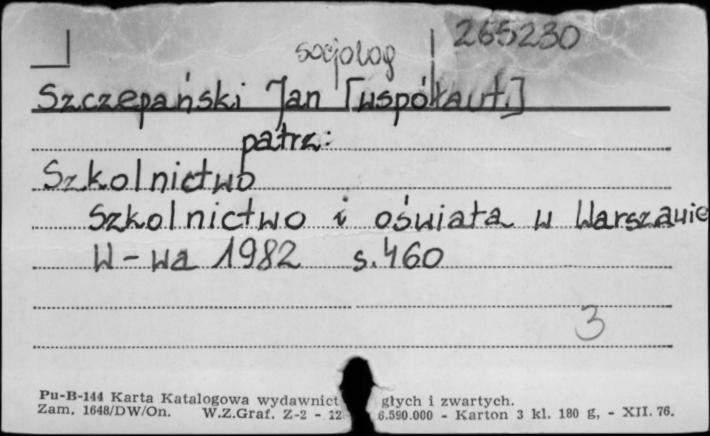 265230
socjolog
Szczepański Jan [współaut.]
patrz:
Szkolnictwo
Szkolnictwo i oświata w Warszawie
W-wa 1982 s.460
3
Pu-B-144 Karta Katalogowa wydawnict głych i zwartych.
Zam. 1648/DW/On. W.Z.Graf. Z-2 - 12 6.590.000 - Karton 3 kl. 180 g, - XII. 76.